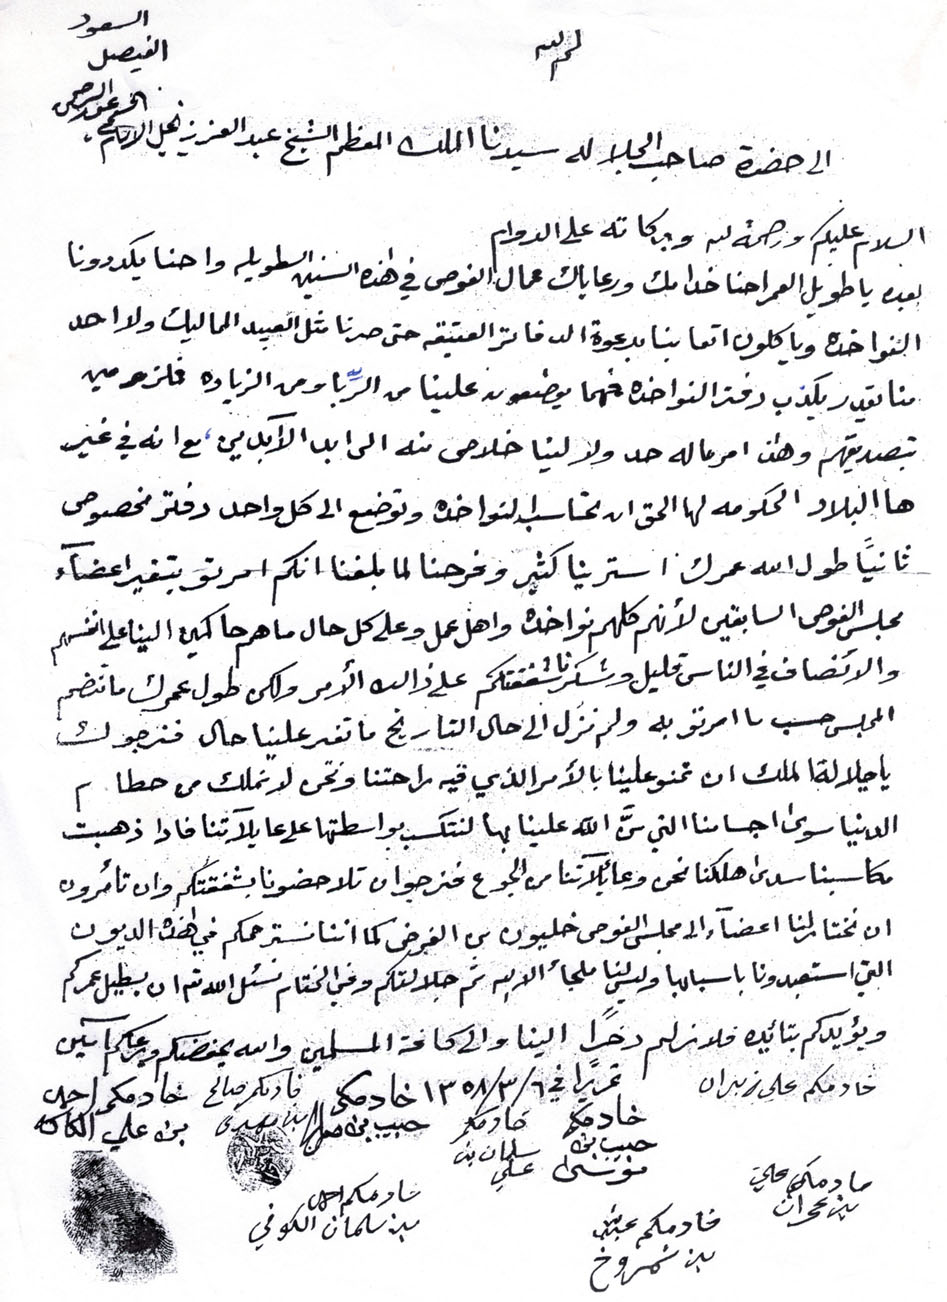 لله
السعود
الفيصل
الى حضرة صاحب الجلاله سيدنا الملك المعظم الشيخ عبد العزيز نجل الامام
السلام عليكم ورحمة الله وبركاته على الدوام
بعده ياطويل العمر احنا خدامك ورعاياك عمال الغوص في هذه السنين الطويله واحنا يكددونا
النواخذه وياكلون اتعابنا بدعوة الدفاتر العتيقه حتى صرنا مثل العبيد المماليك ولا احد
منا يقدر يكذب دفتر النواخذه فمهما يوضعون علينا من الرِّبا ومن الزياده فلزومين
تبصديقهم وهذا امر ماله حد ولا لنا خلاص منه الى ابد الآبدين، مع انه في غير
ها البلاد الحكومه لها الحق ان تحاسب النواخذه وتوضع الى كل واحد دفتر مخصوص
ثانيًا طول الله عمرك استرينا كثير وفرحنا لما بلغنا انكم امرتو بتغير اعضآء
مجلس الغوص السابقين لأنهم كلهم نواخذه واهل عمل وعلى كل حال ماهم حاكمين الينا على انفسهم
والانصاف في الناس قليل وشكرنا شفقتكم على ذالك الأمر ولكن طول عمرك ما تنضم
المجلس حسب ما امرتو به ولم نزل الى حال التاريخ ما تغير علينا حال فنرجوك
ياجلالة الملك ان تمنو علينا بالأمر الذي فيه راحتنا ونحن لا نملك من حطام
الدنيا سوى اجسامنا التي منَّ الله علينا بها لنتكسب بواسطتها على عايلآتنا فاذا ذهبت
مكاسبنا سدى هلكنا نحن وعائيلآتنا من الجوع فنرجو ان تلاحضونا بشفقتكم وان تأمرون
ان نختار لنا اعضآء الى مجلس الغوص خليون من الغرض كما اننا نسترحمكم في هذه الديون
التي استعبدونا باسبابها وليس لنا ملجاء الا الله ثم جلالتكم وفي الختام نسئل الله تع ان يطيل عمركم
ويؤيدكم بتائيده فلا نزلهم ذخرًا الينا والى كافة المسلمين والله يحفضكم ويرعاكم آمين
تحريرًا في ١٣٥٨/٣/٦
خادمكم علي زبران
خادمكم حبيب بن
خادمكم صالح بن مهدي
خادمكم احمد بن علي
خادمكم حبيب بن موسى
خادمكم سلمان بن علي
خادمكم علي بن
خادمكم احمد بن سلمان الكوفي
خادمكم
بن شمروخ